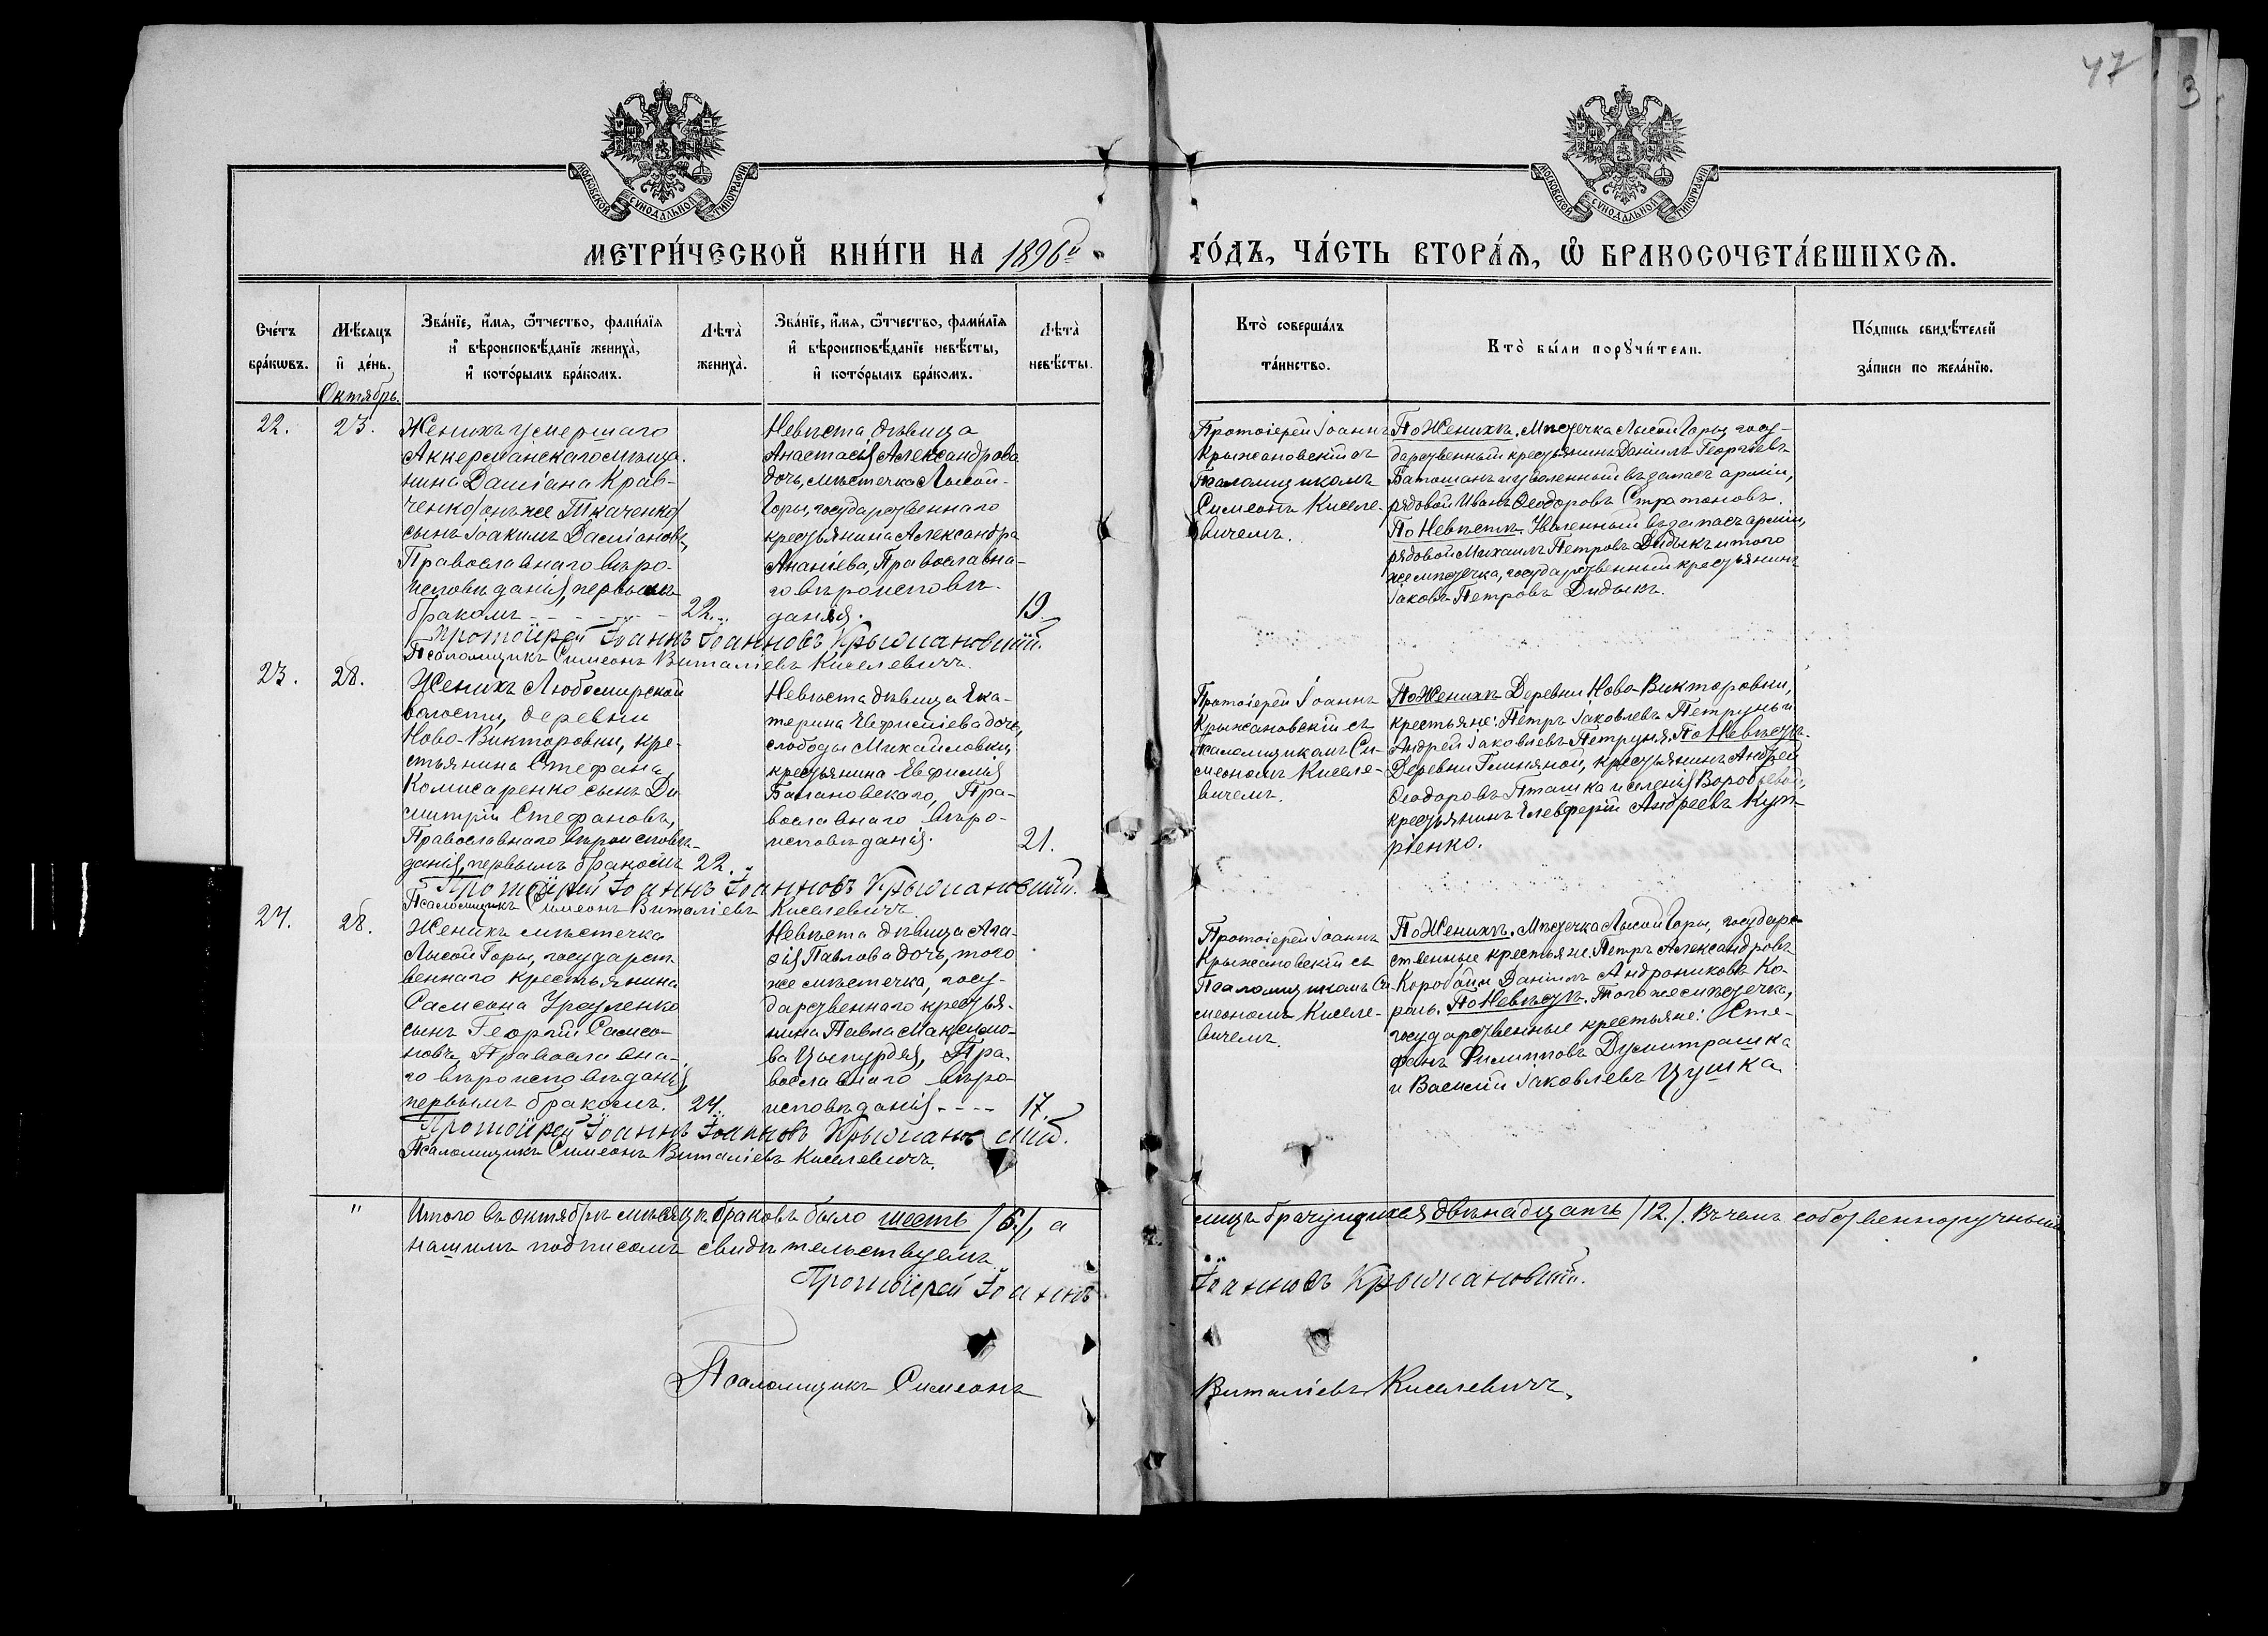 47
3
МОСКОВСКОЙ СУНОДАЛЬНОЙ ТИПОГРАФІИ
МОСКОВСКОЙ СУНОДАЛЬНОЙ ТИПОГРАФІИ
МЕТРИ́ЧЕСКОЙ КНИ́ГИ НА 1896й
ГО́ДЪ, ЧА́СТЬ ВТОРА́Ѧ, Ѽ БРАКОСОЧЕТА́ВШИХСѦ.
Сче́тъ
бра́кѡвъ.
Мѣсяцъ
и҆ де́нь.
Октябрь.
Зва́нїе, и҆́мя, ѻ҆́тчество, фами́лїя
и҆ вѣроисповѣ́данїе жениха̀,
и҆ кото́рымъ бра́комъ.
Лѣта̀
жениха̀.
Зва́нїе, и҆́мя, ѻ҆́тчество, фами́лїя
и҆ вѣроисповѣ́данїе невѣ́сты,
и҆ кото́рымъ бра́комъ.
Лѣта̀
невѣ́сты.
Кто̀ соверша́лъ
та́инство.
Кто̀ бы́ли порꙋчи́тели.
По́дпись свидѣ́телей
за́писи по жела́нїю.
22.
23.
Женихъ умершаго
Аккерманскаго мѣща-
нина Даміана Крав-
ченко /онъ же Ткаченко/
сынъ Іоакимъ Даміановъ,
Православнаго вѣро-
исповѣданія, первымъ
бракомъ
22.
Невѣста дѣвица
Анастасія Александрова
дочь, мѣстечка Лысой-
Горы, государственнаго
крестьянина Александра
Ананіева, Православна-
го вѣроисповѣ-
данія.
19.
Протоіерей Іоаннъ
Крыжановскій съ
Псаломщикомъ
Симеонъ Киселе-
вичемъ.
По Женихѣ. Мѣстечка Лысой Горы, госу-
дарственный крестьянинъ Даніилъ Георгіевъ
Батошанъ и уволенный въ запасъ арміи,
рядовой Иванъ Ѳеодоровъ Стратоновъ.
По Невѣстѣ. Уволенный въ запасъ арміи,
рядовой Михаилъ Петровъ Дидыкъ и того
же мѣстечка, государственный крестьянинъ
Іаковъ Петровъ Дидыкъ.
Протоіерей Іоаннъ Іоанновъ Крыжановскій.
Псаломщикъ Симеонъ Виталіевъ Киселевичъ.
23.
28.
Женихъ Любомирской
волости, деревни
Ново-Викторовки, кре-
стьянина Стефана
Комисаренко сынъ Ди-
митрій Стефановъ,
Православнаго вѣроисповѣ-
данія, первымъ бракомъ
22.
Невѣста дѣвица Ека-
терина Евфиміева дочь,
слободы Михайловки,
крестьянина Евфимія
Балановскаго, Пра-
вославнаго вѣро-
исповѣданія.
21.
Протоіерей Іоаннъ
Крыжановскій съ
Псаломщикомъ Си-
меономъ Киселе-
вичемъ.
По Женихѣ Деревни Ново-Викторовки,
крестьяне: Петръ Іаковлевъ Петруня и
Андрей Іаковлевъ Петруня. По Невѣстѣ.
Деревни Глиняной, крестьянинъ Андрей
Ѳеодоровъ Пташка и селенія Воробьевой,
крестьянинъ Елевферій Андреевъ Куп-
ріенко.
Протоіерей Іоаннъ Іоанновъ Крыжановскій.
Псаломщикъ Симеонъ Виталіевъ Киселевичъ.
24.
28.
Женихъ мѣстечка
Лысой Горы, государст-
веннаго крестьянина
Самсона
сынъ Георгій Самсо-
новъ, Православна-
го вѣроисповѣданія,
первымъ бракомъ.
24.
Невѣста дѣвица Ага-
ѳія Павлова дочь, того
же мѣстечка, госу-
дарственнаго крестья-
нина Павла Максимо-
ва Цыпурдея, Пра-
вославнаго вѣро-
исповѣданія
17.
Протоіерей Іоаннъ
Крыжановскій съ
Псаломщикомъ Си-
меономъ Киселе-
вичемъ.
По Женихѣ. Мѣстечка Лысой Горы, государ-
ственные крестьяне Петръ Александровъ
Коробан и Даніилъ Андрониковъ Ко-
роль. По Невѣстѣ. Того же мѣстечка,
государственные крестьяне: Сте-
фанъ Филипповъ Думитрашка
и Василій Іаковлевъ Цушка
Протоіерей Іоаннъ Іоанновъ Крыжановскій.
Псаломщикъ Симеонъ Виталіевъ Киселевичъ.
" Итого въ октябрѣ мѣсяцѣ браковъ было шесть /6./, а
лицъ брачущихся двѣнадцать /12./. Въ чемъ собственноручнымъ
нашимъ подписомъ свидѣтельствуемъ.
Протоіерей Іоаннъ Іоанновъ Крыжановскій.
Псаломщикъ Симеонъ Виталіевъ Киселевичъ.